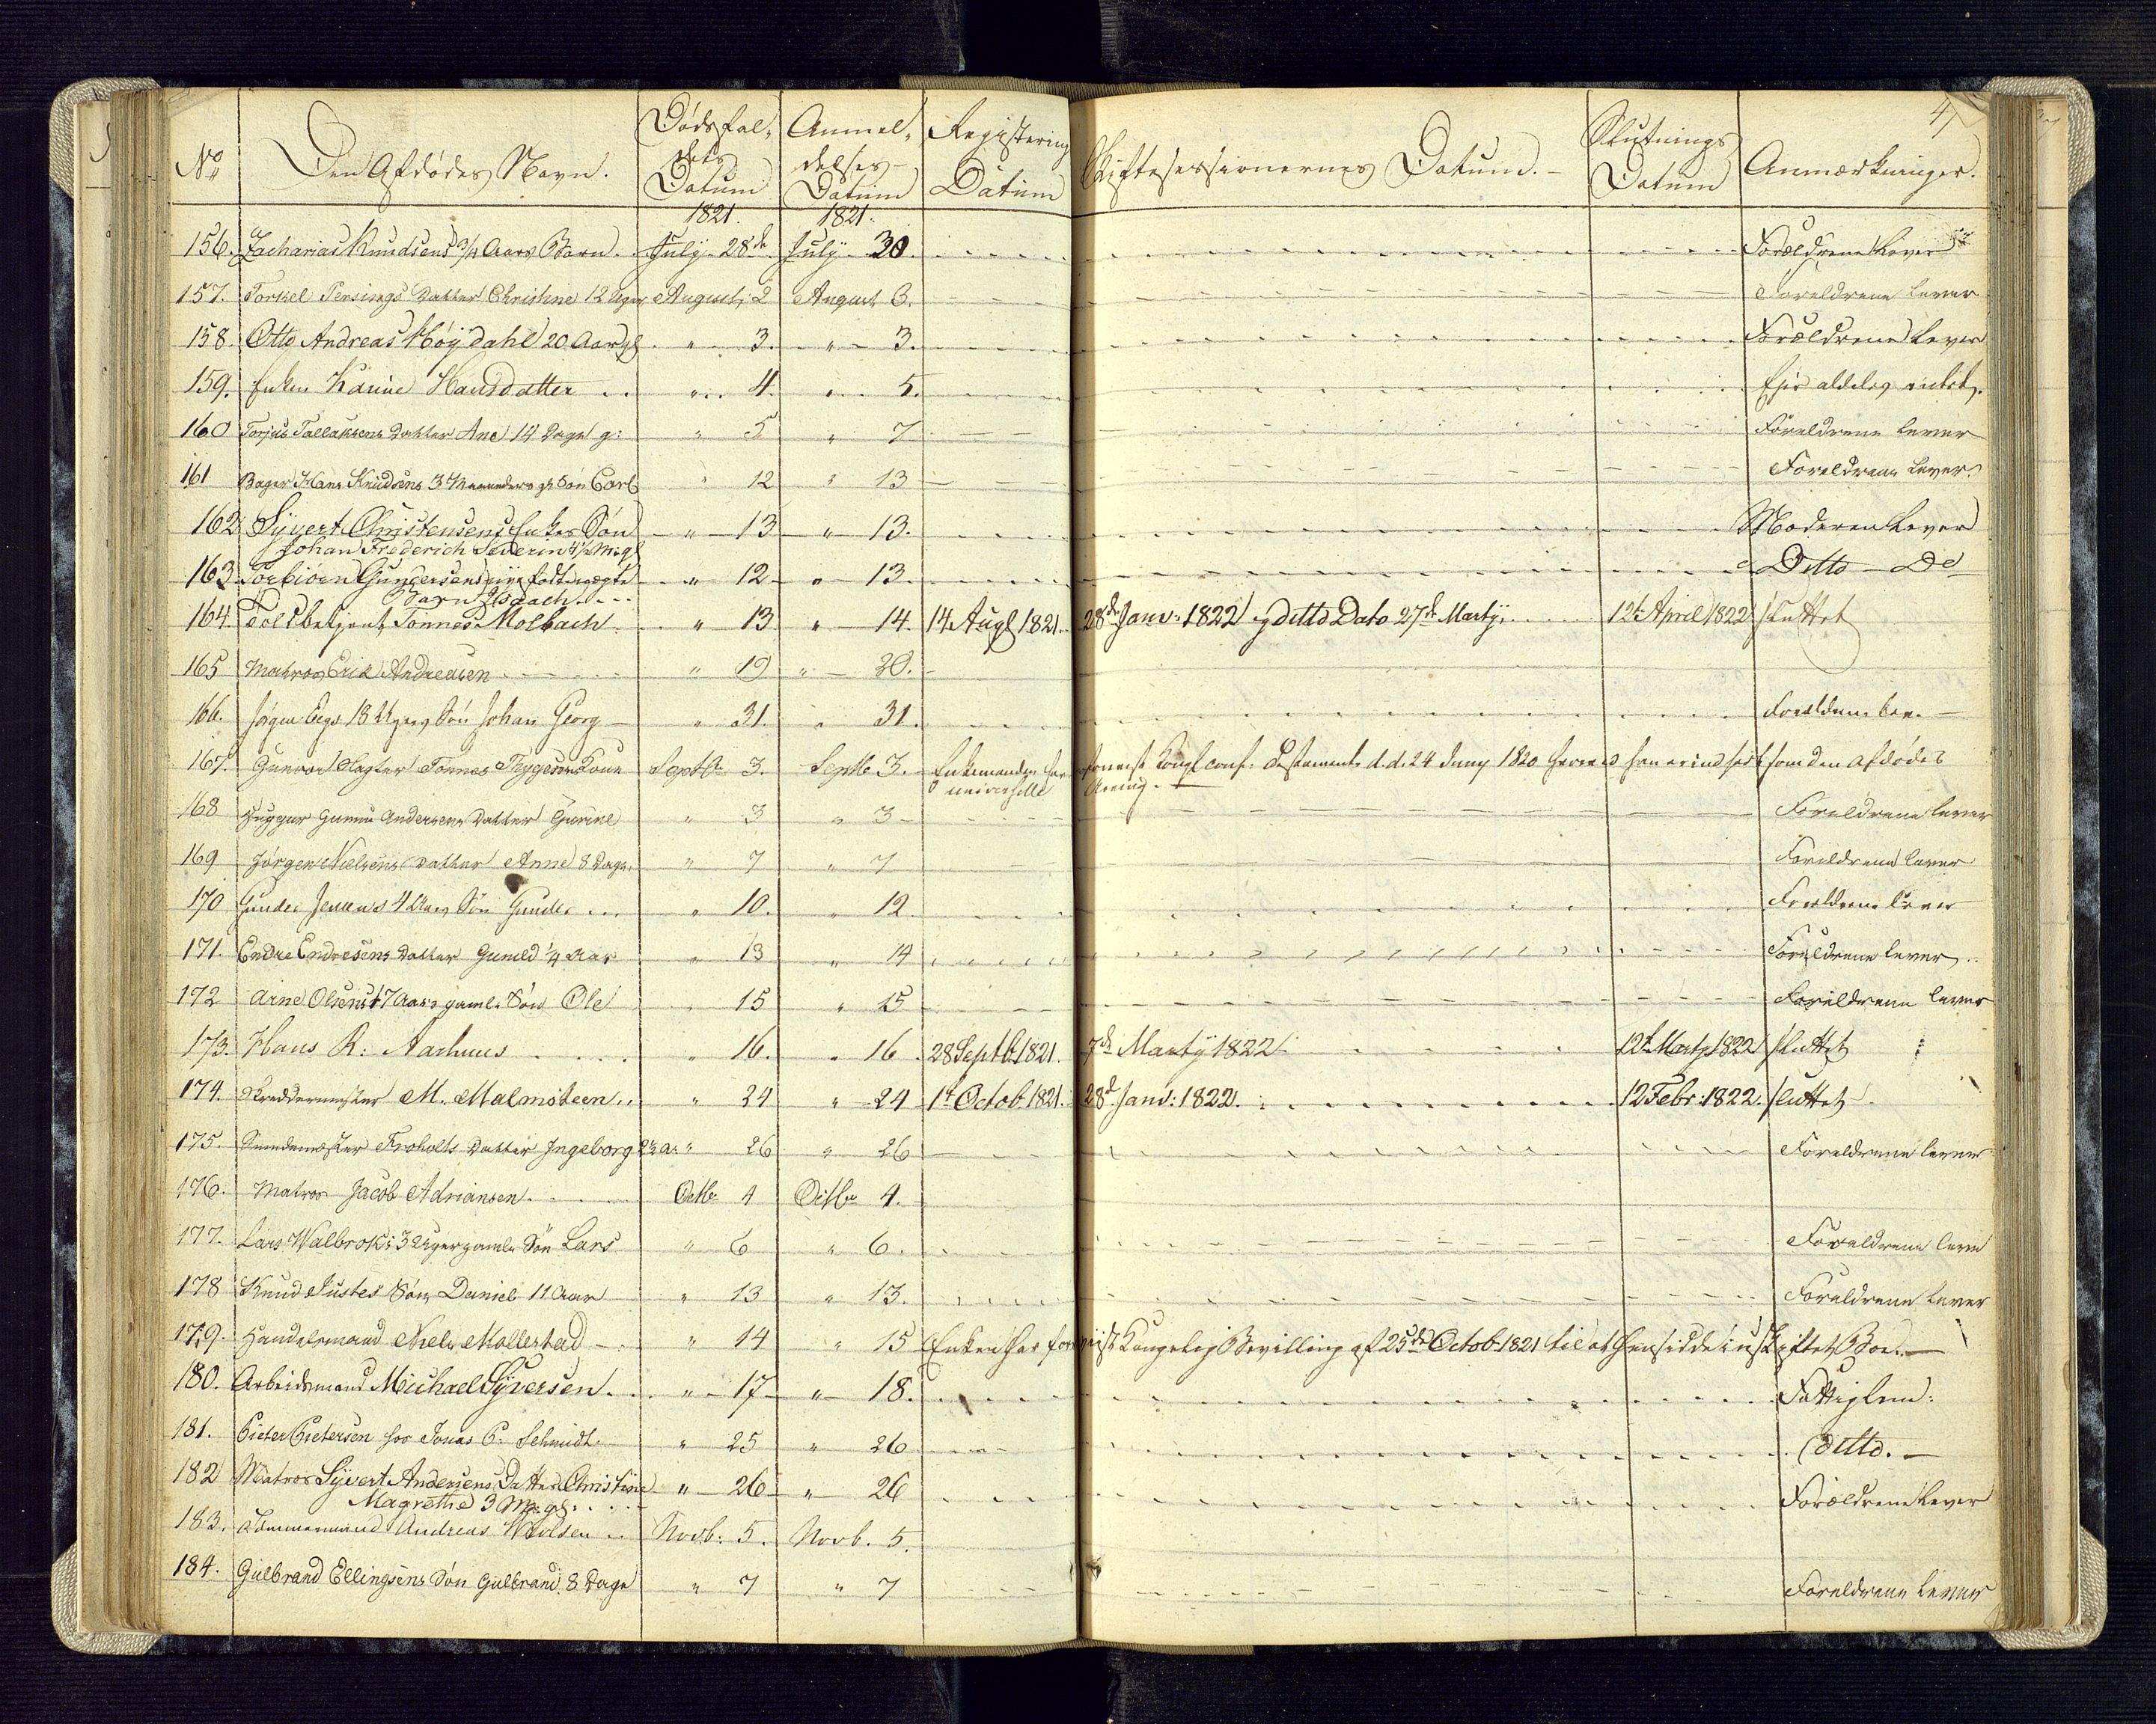 4
No Den Afdødes Navn. Dødsfal- dets Datum Anmel- delses- Datum Registering Datum Skiftesessionernes Datum. Slutnings Datum Anmærkninger.
1821. 1821.
156. Zacharias Knudsens 3/4 Aars Barn. July 28de July 30. Forældrene Lever
157. Torkel Datter Christine 12 Uger August 2 August 3. Foreldrene lever
158. Otto Andreas Høydahl 20 Aar gl " 3. " 3. Forældrene Lever
159. Enken Karine Hansdatter " 4. " 5. Ejer aldeles intet.
160 Torjus Tallaksens Datter Ane 14 Dage g: " 5 " 7 Foreldrene lever
161 Bager Hans Knudsens gl Søn Carl " 12 " 13 Foreldrene lever.
162 Syvert Christensens Enkes Søn " 13 " 13. Moderen Lever
Johan Frederich Severin
163 Torbiørn Gundersens " 12 " 13. Ditto Do
Barn Isaach
164. Toldbetjent Tønnes Molbach " 13 " 14. 14 Augt 1821. 28de Janv: 1822 ditto Dato 27de Martij. 12t April 1822 sluttet
165 Matros Erik Andreasen " 19 " 20.
166. Søn Johan Georg " 31. " 31.
167. Tønnes Thygesens Kone Septbr 3. Septbr 3. Enkemanden har Kongl conf. Testamente d.d. 24 Juny 1820 som den afdødes
universelle Arving.
168 Gunnu Andersens Datter Gurine " 3 " 3 Foreldrene lever
169 Jørgen Nielsens Datter Anne 8 Dage. " 7 " 7 Foreldrene lever
170 Gunder Jensens 4 Aars Søn Gunder " 10. " 12 Foreldrene lever
171. Endre Endresens Datter Guneld 1/4 Aar " 13 " 14 Foreldrene lever
172 Arne Olsens 17 Aars gamle Søn Ole " 15 " 15 Foreldrene lever
173. Hans R: Aarhuus " 16. " 16 28 Septb 1821. 7de Martij 1822 12t Martz 1822 sluttet
174. Skreddermester M. Malmsteen " 24 " 24 1t Octob 1821. 28d. Janv: 1822. 12 Febr: 1822. sluttet
175. Froholts Datter Ingeborg 2 1/2 A: " 26 " 26 Foreldrene lever
176. Matros Jacob Adriansen Octbr 4 Octbr 4.
177. Lars Walbroks 3 Uger gamle Søn Lars " 6 " 6. Foreldrene leve
178 Knud Justes Søn Daniel 11 Aar " 13 " 13. Foreldrene lever
179. Handelsmand Niels Mollestad " 14 " 15 Enken har foreviist Kongelig Bevilling af 25de Octob 1821 til at hensidde i uskiftet Boe.
180. Arbeidsmand Michael Syversen. " 17 " 18. Fattiglem.
181. Pieter Pietersen hos Jonas C. Schmidt. " 25 " 26 ditto.
182 Matros Syvert Andersens Datter Christine " 26 " 26 Forældrene Lever
Magrethe 3 M: gl:
183. Tømmermand Andreas Novb: 5. Novb. 5.
184. Gulbrand Ellingsens Søn Gulbrand 8 Dage " 7 " 7 Foreldrene lever